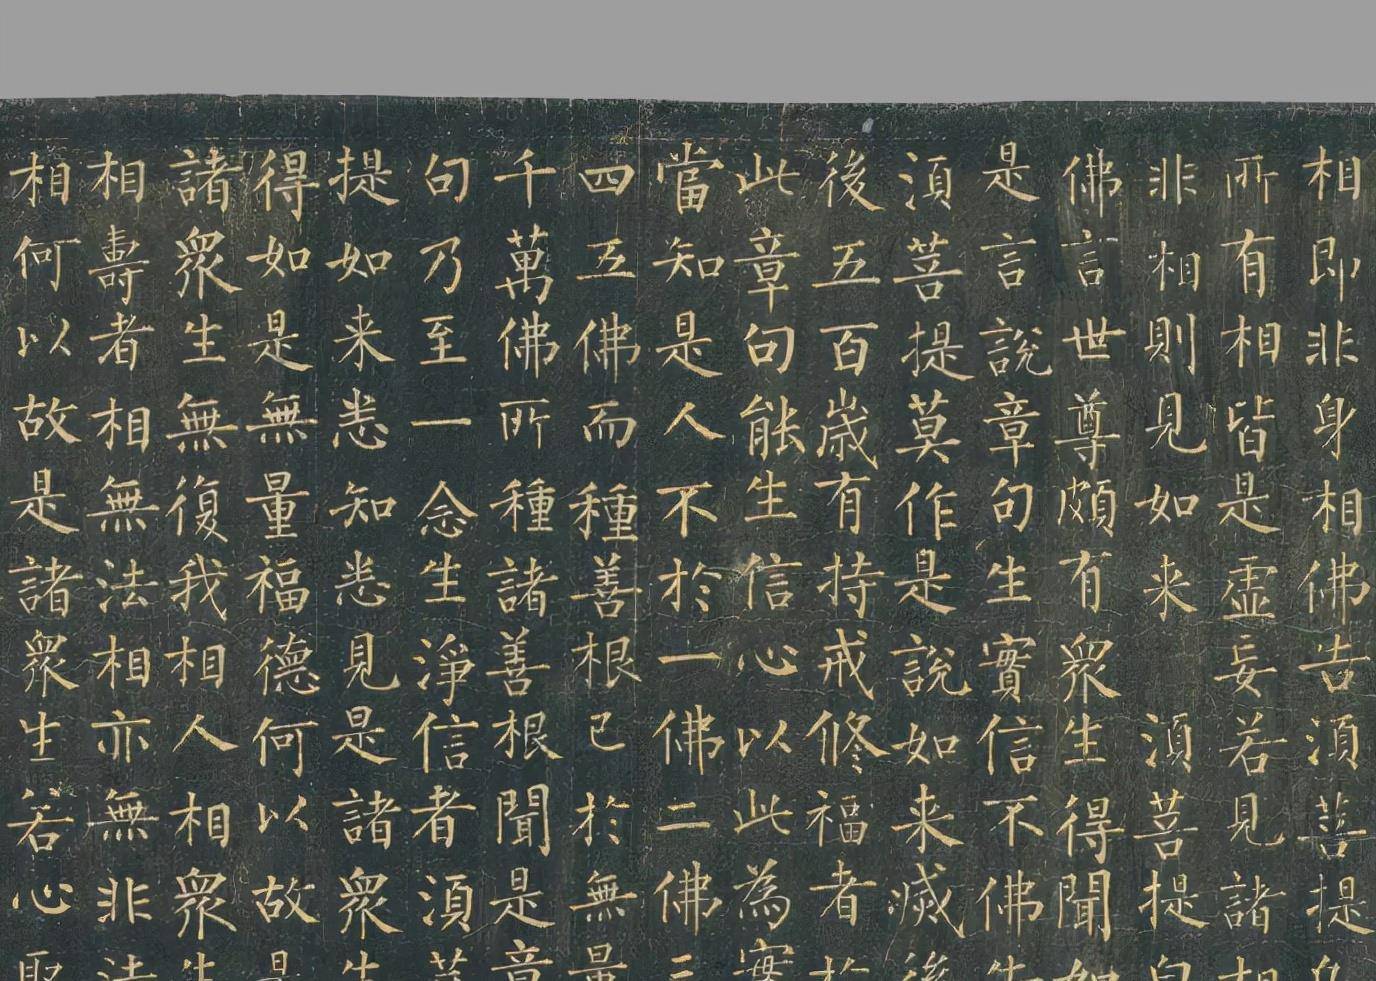 相即非身相佛告須菩提凡
所有相皆是虛妄若見諸相
非相則見如来須菩提白
佛言世尊頗有衆生得聞如
是言說章句生實信不佛告
須菩提莫作是說如来滅後
後五百歲有持戒修福者於
此章句能生信心以此為實
當知是人不於一佛二佛三
四五佛而種善根已於無量
千萬佛所種諸善根聞是章
句乃至一念生淨信者須菩
提如来悉知悉見是諸衆生
得如是無量福德何以故是
諸衆生無復我相人相衆生
相壽者相無法相亦無非法
相何以故是諸衆生若心取